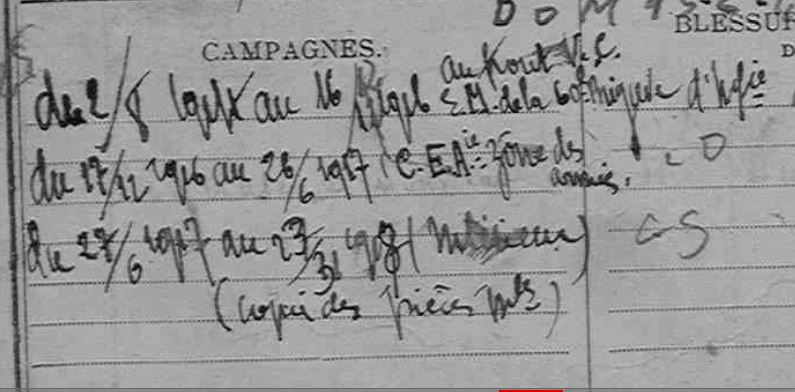 CAMPAGNES.
BLESSUR
du 2/8 1914 au 16/12 1916 au front V.C. E.M. de la 60e Brigade d'Infie
du 17/12 1916 au 26/6 1917 C.E.Aie zone des armées.
du 27/6 1917 au 23/3 1918 (Intérieur)
(copie des pièces mles)